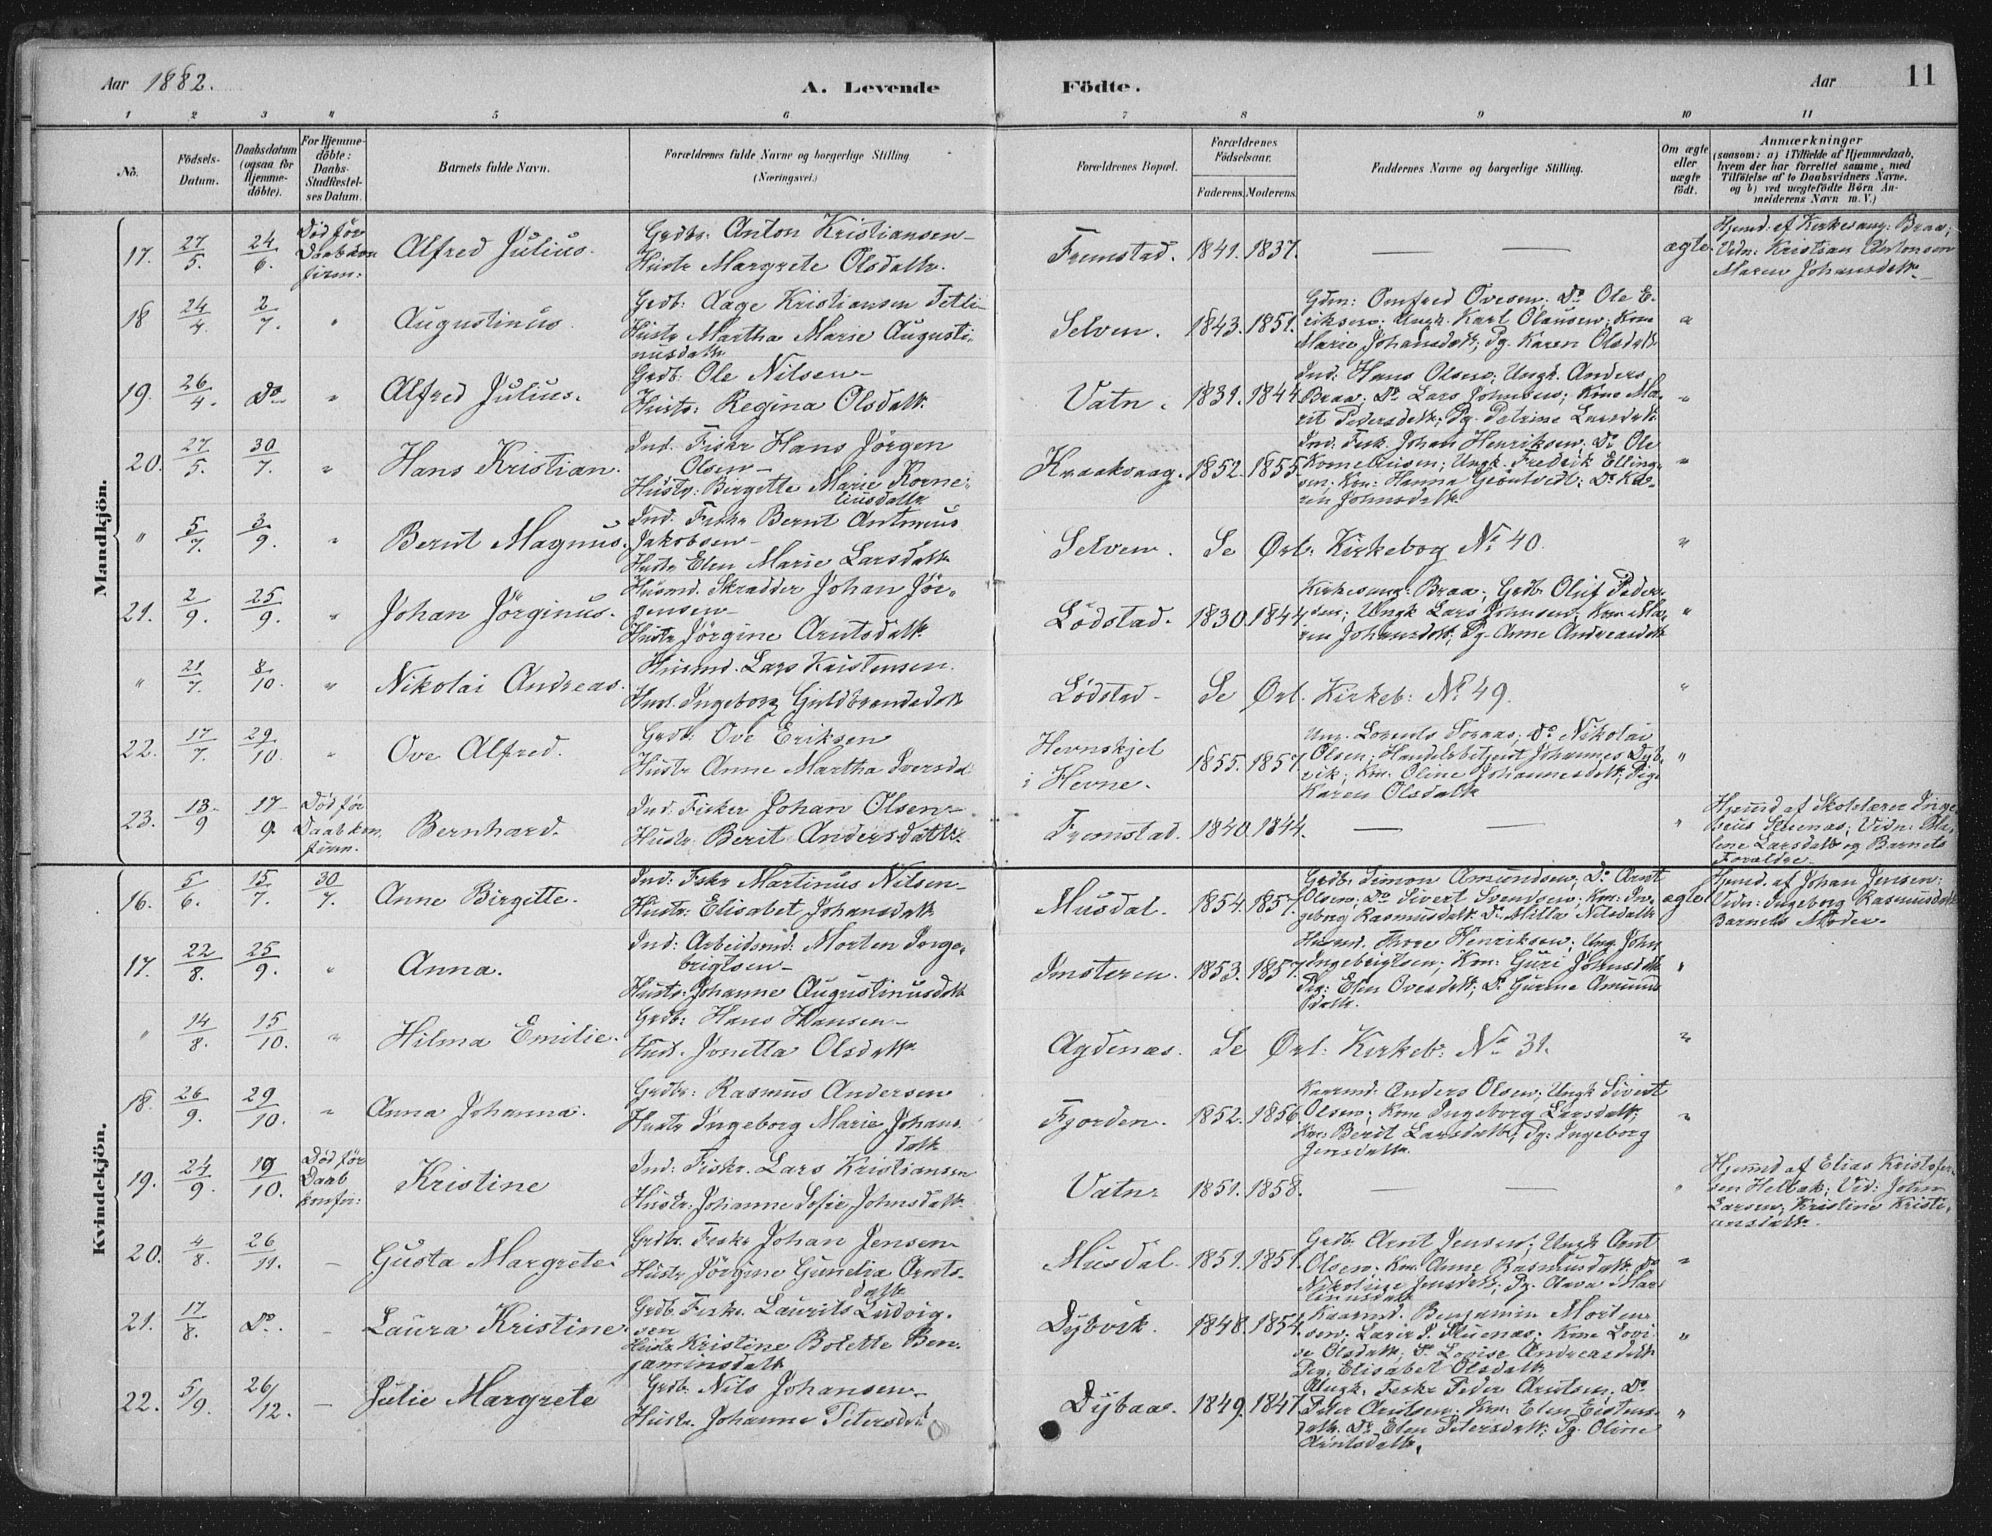 Aar 1882.
A. Levende
Födte.
Aar
11
1 2 3 4 5 6 7 8 9 10 11
No.
Födsels-
Datum.
Daabsdatum
(ogsaa for
Hjemme-
döbte).
For Hjemme-
döbte:
Daabs-
Stadfæstel-
ses Datum.
Barnets fulde Navn.
Forældrenes fulde Navne og borgerlige Stilling
(Næringsvei.)
Forældrenes Bopæl.
Forældrenes
Födselsaar.
Faderens. Moderens.
Faddernes Navne og borgerlige Stilling.
Om ægte
eller
uægte
födt.
Anmærkninger
(saasom: a) i Tilfælde af Hjemmedaab,
hvem der har forrettet samme, med
Tilföielse af to Daabsvidners Navne,
og b) ved uægtefödte Börn An-
melderens Navn m. V.)
Mandkjön.
17. 27/5. 24/6.
Död för
Daabskon
firm:
Alfred Julius.
Grdbr. Anton Kristiansen
Hustr Margrete Olsdattr.
Fremstad. 1841. 1837. — — ægte
Hjemd. af Kirkesang. Braa;
Vidn: Kristian Antonsen
Maren Johansdattr.
18 24/4 2/7. "
Augustinus
Grdb: Aage Kristiansen Tetli
Hustr Martha Marie Augusti-
nusdattr
Selven. 1843. 1851.
Gdm: Omfred Ovesen. Do Ole E-
riksen; Ungk. Karl Olausen; Kone
Marie Johansdatt; Pg. Karen Olsdatt
"
19. 26/4. Do "
Alfred Julius.
Grdb: Ole Nilsen
Hustr: Regina Olsdatt.
Vatn. 1831. 1844
Ind: Hans Olsen; Ungk. Anders
Braa; Do Lars Johnsen; Kone Ma-
rit Pedersdatt; Pg. Petrine Larsdatt.
"
20. 27/5. 30/7. "
Hans Kristian.
Ind. Fiskr Hans Jörgen
Olsen
Hustr: Birgitte Marie Korne-
liusdattr
Kraakvaag. 1852. 1855.
Ind. Fisk. Johan Henriksen; Do Ole
Korneliusen; Ungk. Fredrik Elling-
sen; Kone: Hanna ; Do Ka-
ren Johnsdatt.
"
" 5/7. 3/9. "
Bernt Magnus.
Ind. Fiskr Bernt Antonius
Jakobsen
Hustr Elen Marie Larsdatt
Selven. Se Örl: Kirkebog No 40. "
21. 2/9. 25/9. "
Johan Jörginus.
Husmd. Skrædder Johan Jör-
gensen
Hustr Jörgine Arntsdatt
Lödstad. 1830. 1844
Kirkesang: Braa; Grdb. Oluf Peder-
sen; Ungk Lars Johnsen; Kone Ma-
ren Johansdatt; Pg. Anne Andreasdatt
"
" 21/7. 8/10. "
Nikolai Andreas.
Husmd. Lars Kristensen.
Hust. Ingeborg Guldbrandsdatt
Lödstad Se Örl. Kirkeb: No 49. "
22. 17/7. 29/10. "
Ove Alfred.
Grdb: Ove Eriksen
Hustr Anne Martha Iversda
Hevnskjel
i Hevne.
1855. 1857.
Ung. Lorents Foraas; Do Nikolai
Olsen; Handelsbetjent Johannes Dyb-
vik; Kone Oline Johannesdatt; Pige
Karen Olsdatt
"
23. 13/9 17/9.
Död för
Daabskon
firm.
Bernhard.
Ind. Fisker Johan Olsen
Hustr. Berit Andersdattr.
Fremstad. 1840. 1844. — — "
Hjemd af Skolelærer Inge-
 Stuenæs; Vidn:
 Larsdatt og Barnets
Forældre.
Kvindekjön.
16. 5/6. 15/7. 30/7.
Anne Birgitte.
Ind: Fiskr Martinus Nilsen
Hustr: Elisabet Johansdatt
Musdal. 1854. 1857.
Grdb: Simon Amundsen; Do Arnt
Olsen; Do Sivert Svendsen; Kone: In-
geborg Rasmusdatt. Do Mitta Nilsdatt
ægte
Hjemd. af Johan Jensen;
Vidn: Ingeborg Rasmusdatt
Barnets Moder.
17. 22/8. 25/9. "
Anna.
Ind: Arbeidsmd: Morten Inge-
brigtsen
Hustr: Johanne Augustinusdatt
Imsteren. 1853. 1857.
Husmd. Thore Henriksen; Ung. John
Ingebrigtsen; Kone: Guri Johnsdatt
Pig: Elen Ovesdatt; Do Gurine Amunds
datt.
"
" 14/8. 15/10. "
Hilma Emilie.
Grdb: Hans Hansen
Hust. Jonetta Olsdattr.
Agdenæs. Se Örl: Kirkeb: No 31. "
18. 26/9. 29/10. "
Anna Johanna.
Grdbr: Rasmus Andersen
Hustr Ingeborg Marie Johans
datt
Fjorden. 1852. 1856.
Kaarmd: Anders Olsen; Ungk Sivert
Olsen; Kone Ingeborg Larsdatt;
Kone: Berit Larsdatt; Pg: Ingeborg
Jensdatt.
"
19. 24/9. 19/10.
Död för
Daab
konfir:
Kristine
Ind: Fiskr. Lars Kristiansen
Hustr. Johanne Sofie Johnsdatt.
Vatn. 1851. 1858. — — "
Hjemd af Elias Kristofer-
sen Helbak; Vid: John
Larsen, Kristine Kristi-
ansdatt.
20. 4/8. 26/11. —
Gusta Margrete.
Grdbr. Fiskr Johan Jensen
Hustr Jörgine Gunelia Arnts-
datt
Musdal. 1851. 1851.
Grdb. Arnt Jensen; Ungk Arnt
Olsen. Kone. Anne Rasmusdatt. Do
Nikoline Jensdatt; Pg. Olava Mar-
tinusdatt
"
21. 17/8. Do. —
Laura Kristine.
Grdb. Fiskr. Laurits Ludvig-
sen
Hustr Kristine Bolette Ben-
jaminsdatt
Dybvik. 1848. 1854.
Kaarmd. Benjamin Morten
sen; Lærer S. Stuenæs; Kone Lovi-
se Olsdatt; Do Lovise Andreasdatt
Pig. Elisabet Olsdatt
"
22. 5/9. 26/12. —
Julie Margrete
Grdb. Nils Johansen
Hustr. Johanne Petersdatt
Dybaas. 1849. 1847.
Ungk. Fiskr Peder Arntsen; Do
Peter Arntsen; Kone: Elen Eistens-
datt. Do Elen Petersdatt; Pg. Oline
Arntsdatt.
"